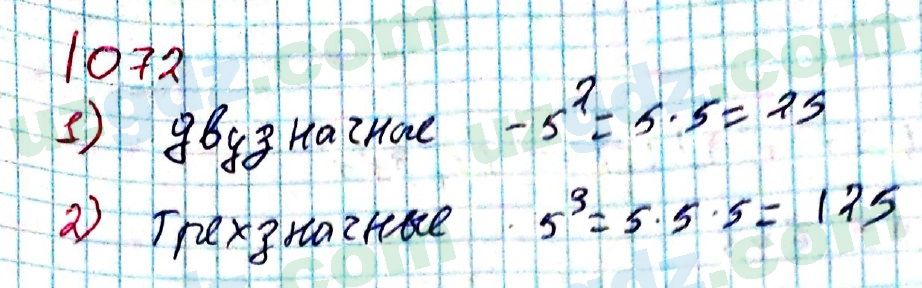 1072
1) двузначные - 5² = 5 · 5 = 25
2) Трехзначные 5³ = 5 · 5 · 5 = 125